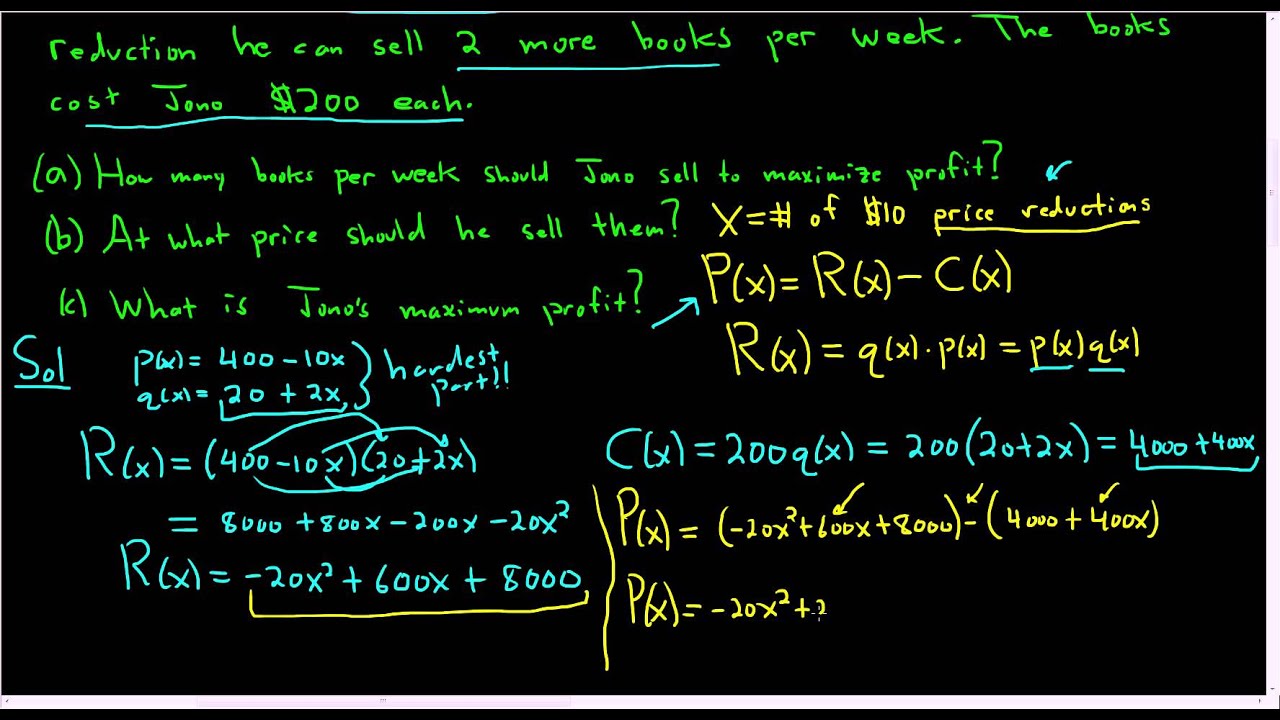 reduction he can sell 2 more books per week. The books
cost Jono $200 each.
(a) How many books per week should Jono sell to maximize profit?
(b) At what price should he sell them?
X = # of $10 price reductions
P(x) = R(x) − C(x)
(c) What is Jono's maximum profit?
R(x) = q(x) · p(x) = p(x) q(x)
Sol
p(x) = 400 − 10x
q(x) = 20 + 2x
hardest
part!!
R(x) = (400 − 10x)(20 + 2x)
= 8000 + 800x − 200x − 20x²
R(x) = −20x² + 600x + 8000
C(x) = 200q(x) = 200(20+2x) = 4000 + 400x
P(x) = (−20x² + 600x + 8000) − (4000 + 400x)
P(x) = −20x² + 2